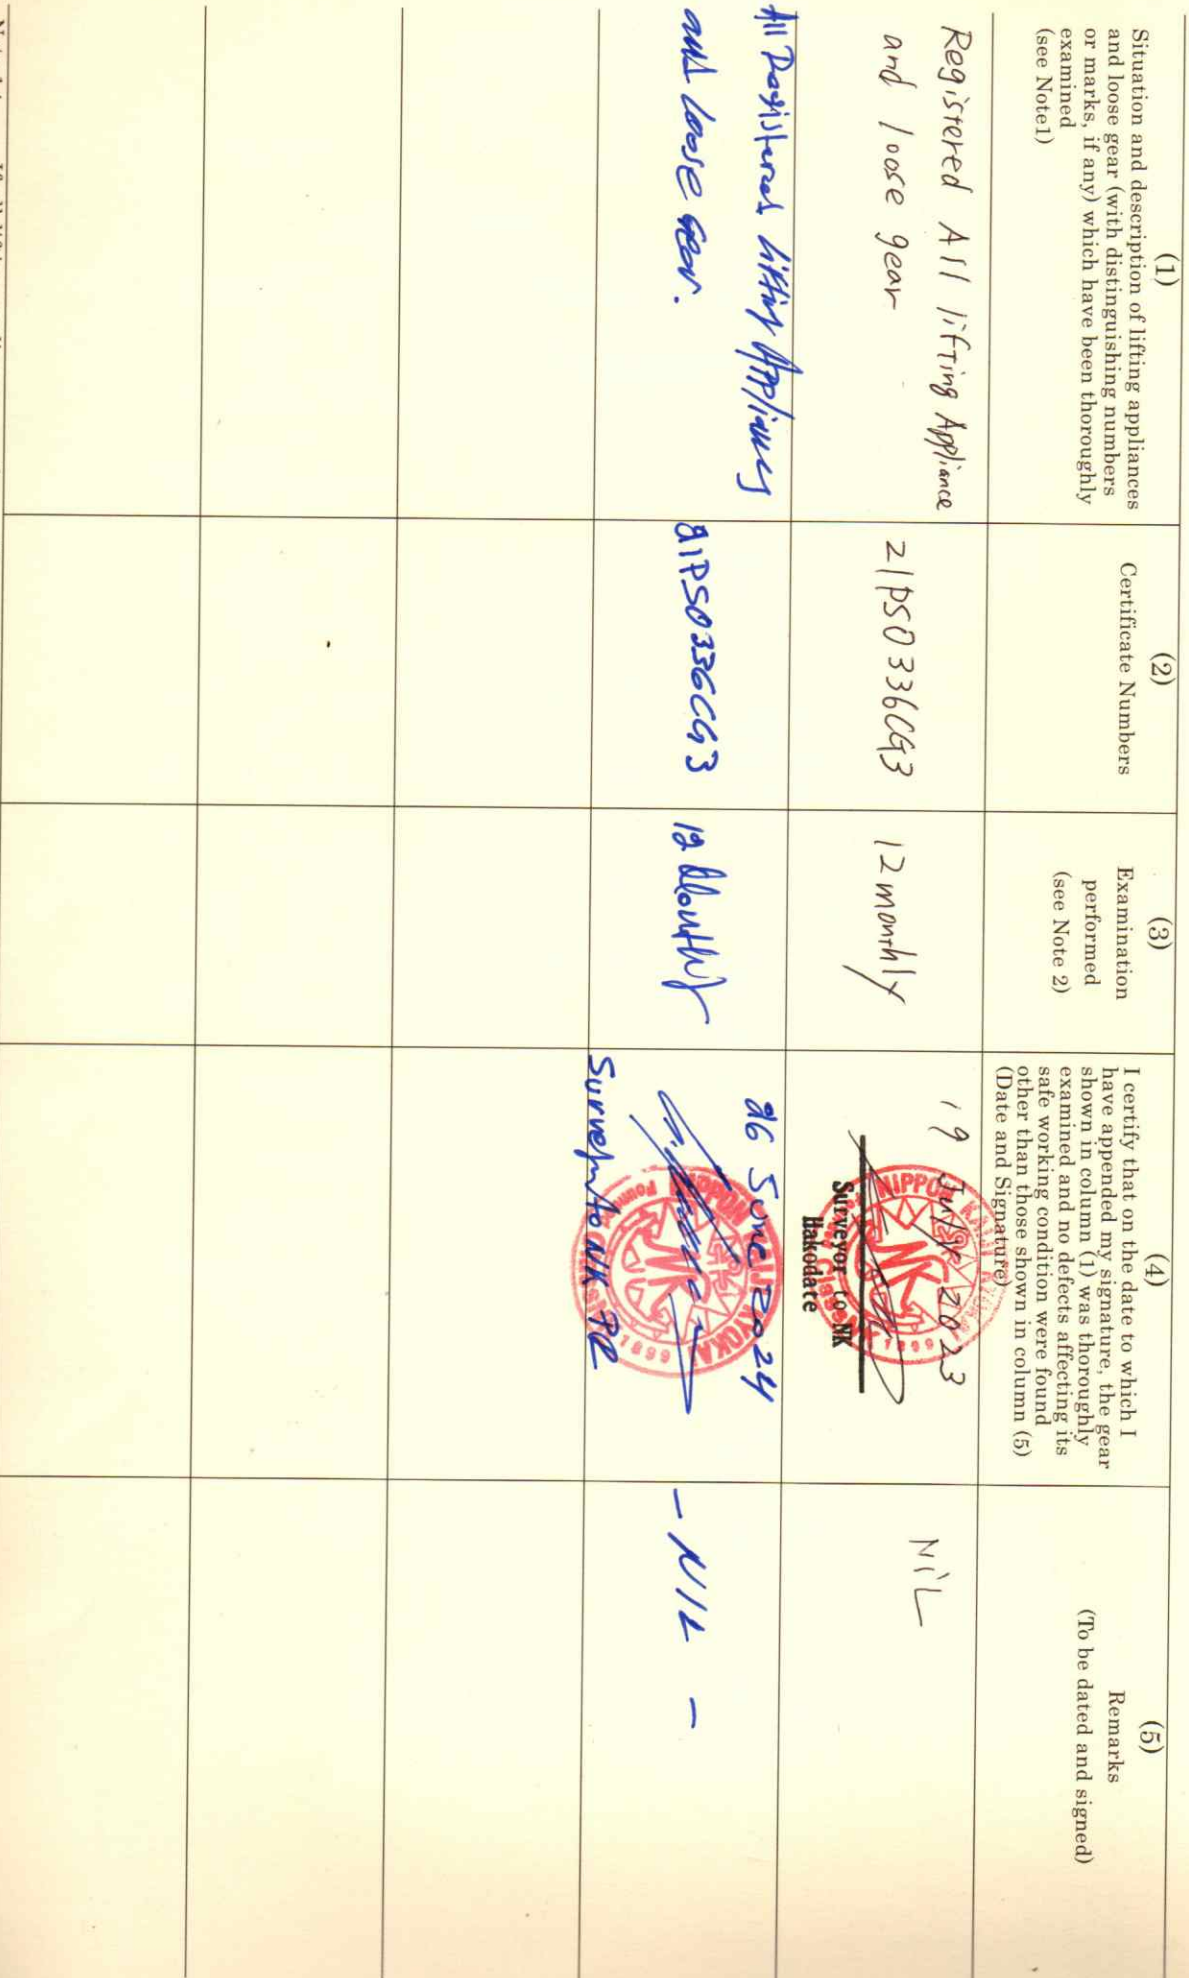 (1)
Situation and description of lifting appliances
and loose gear (with distinguishing numbers
or marks, if any) which have been thoroughly
examined
(see Note1)
(2)
Certificate Numbers
(3)
Examination
performed
(see Note 2)
(4)
I certify that on the date to which I
have appended my signature, the gear
shown in column (1) was thoroughly
examined and no defects affecting its
safe working condition were found
other than those shown in column (5)
(Date and Signature)
(5)
Remarks
(To be dated and signed)
Registered All lifting Appliance
and loose gear
21PS0336CG3
12 monthly
19 July 2023
NIPPON KAIJI KYOKAI
NK
1899
Surveyor to NK
Hakodate
NiL
All Registered lifting Appliances
and loose gear.
21PS0336CG3
12 Monthly
26 June 2024
NIPPON KAIJI KYOKAI
NK
1899
Surveyor to NK
- NIL -